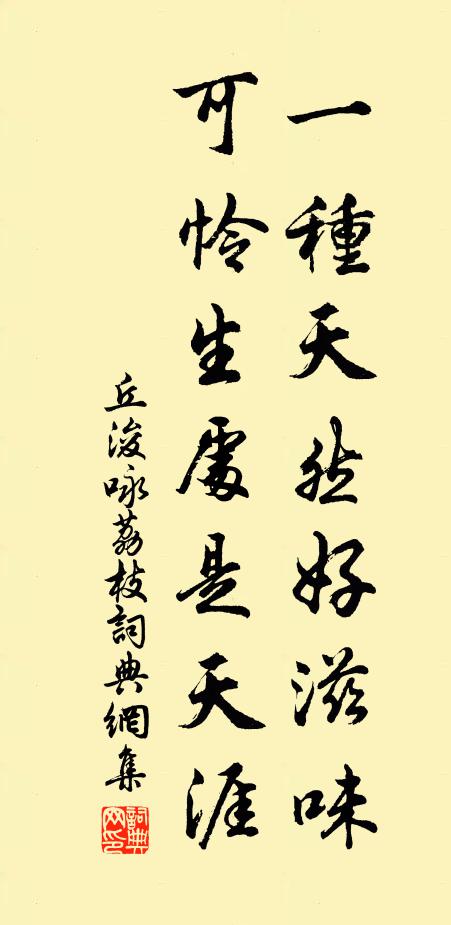 一種天然好滋味
可怜生處是天涯
丘浚咏荔枝詞典網集
詞典網印